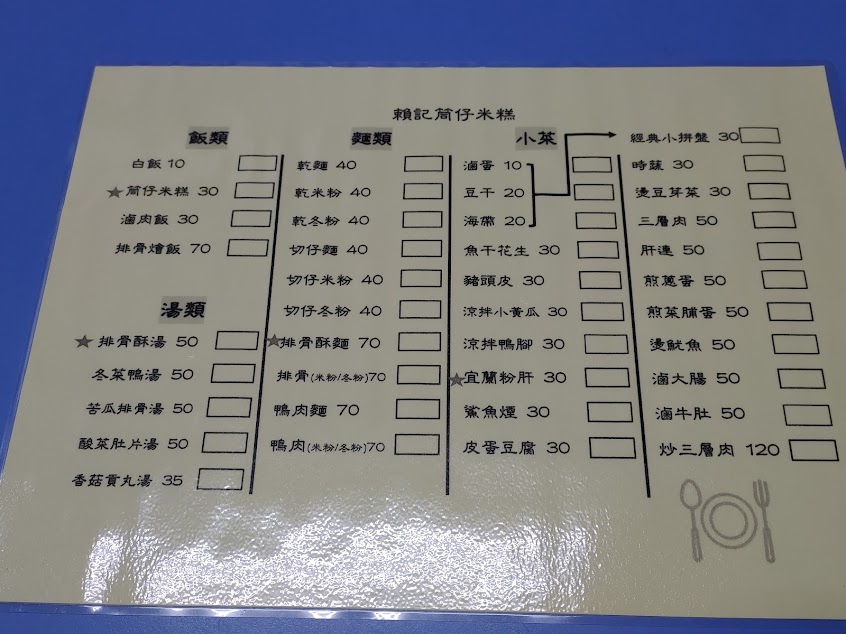 賴記筒仔米糕
飯類
白飯 10
★筒仔米糕 30
滷肉飯 30
排骨燴飯 70
湯類
★ 排骨酥湯 50
冬菜鴨湯 50
苦瓜排骨湯 50
酸菜肚片湯 50
香菇貢丸湯 35
麵類
乾麵 40
乾米粉 40
乾冬粉 40
切仔麵 40
切仔米粉 40
切仔冬粉 40
★排骨酥麵 70
排骨(米粉/冬粉)70
鴨肉麵 70
鴨肉(米粉/冬粉)70
小菜
滷蛋 10
豆干 20
海帶 20
魚干花生 30
豬頭皮 30
涼拌小黃瓜 30
涼拌鴨腳 30
★宜蘭粉肝 30
鯊魚煙 30
皮蛋豆腐 30
經典小拼盤 30
時蔬 30
燙豆芽菜 30
三層肉 50
肝連 50
煎蔥蛋 50
煎菜脯蛋 50
燙魷魚 50
滷大腸 50
滷牛肚 50
炒三層肉 120